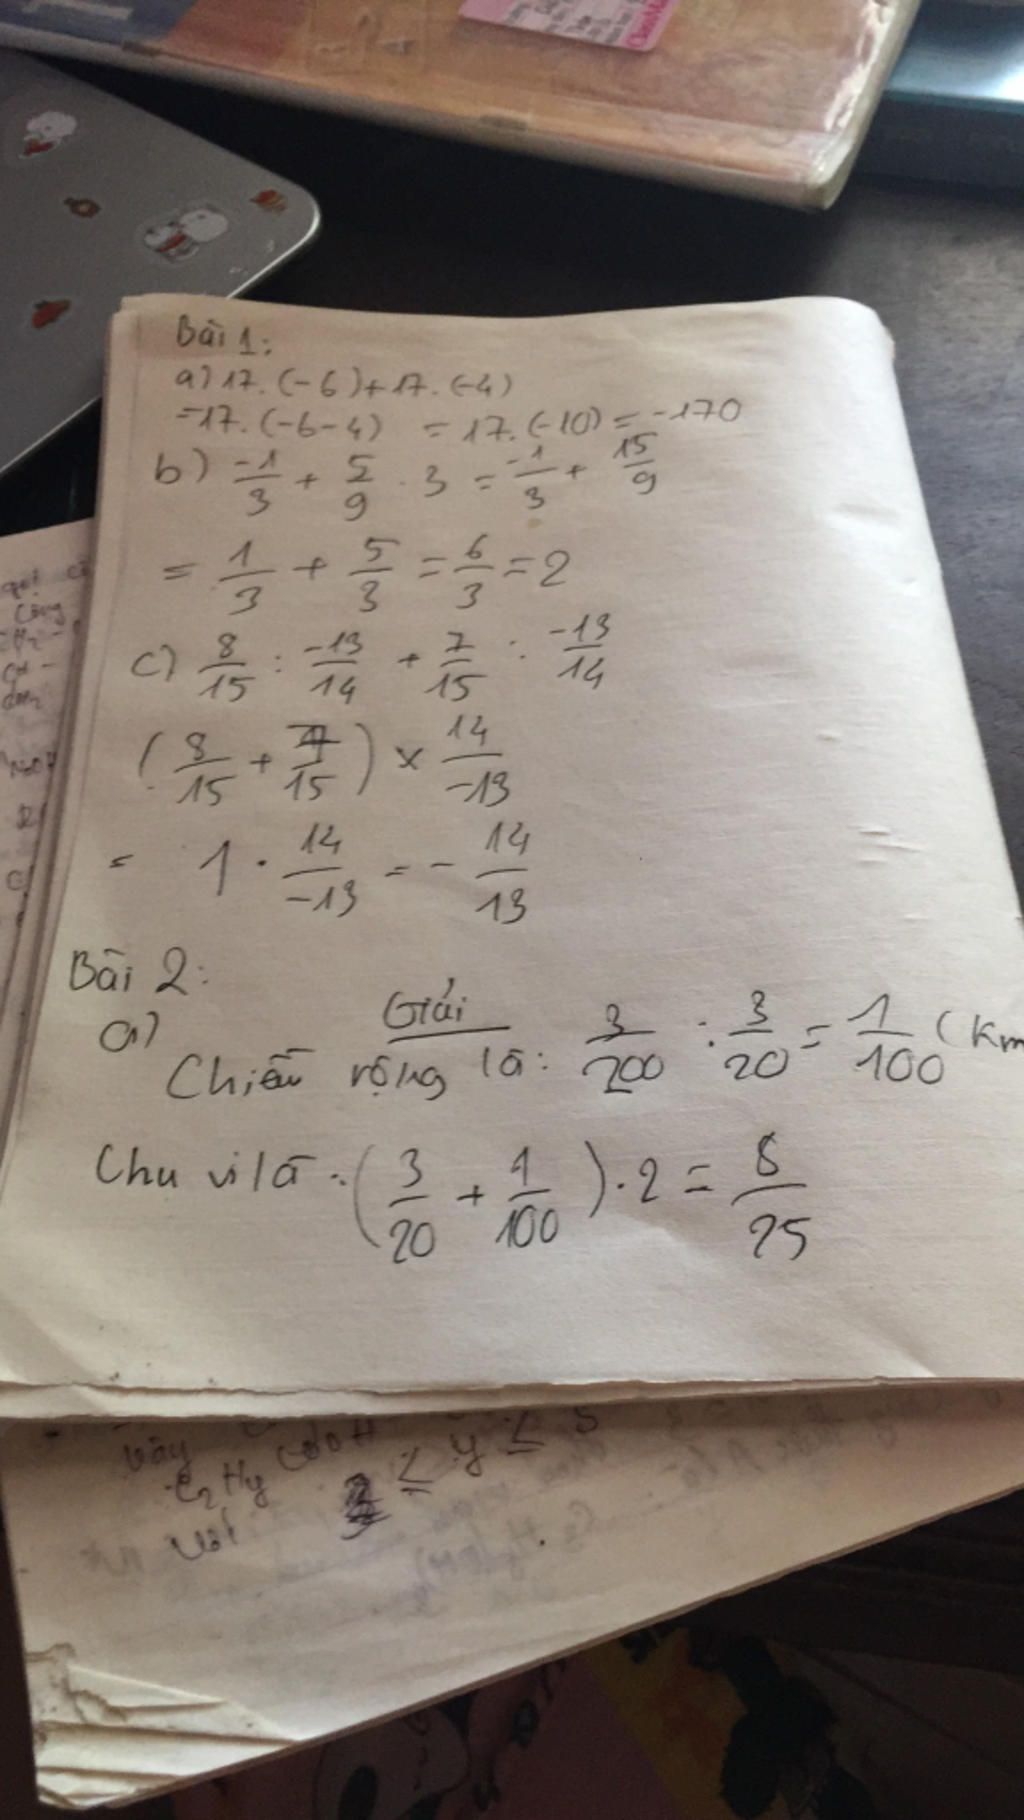 Bài 1:
a) 17. (-6) + 17. (-4)
= 17. (-6-4) = 17. (-10) = -170
b) -1/3 + 5/9 . 3 = -1/3 + 15/9
= 1/3 + 5/3 = 6/3 = 2
c) 8/15 : -13/14 + 7/15 : -13/14
(8/15 + 7/15) × 14/-13
= 1 . 14/-13 = - 14/13
Bài 2:
Giải
a) Chiều rộng là: 3/200 : 3/20 = 1/100 (Km
Chu vi là: (3/20 + 1/100) . 2 = 8/25
vậy
C2Hy
≤ y ≤ 5
với